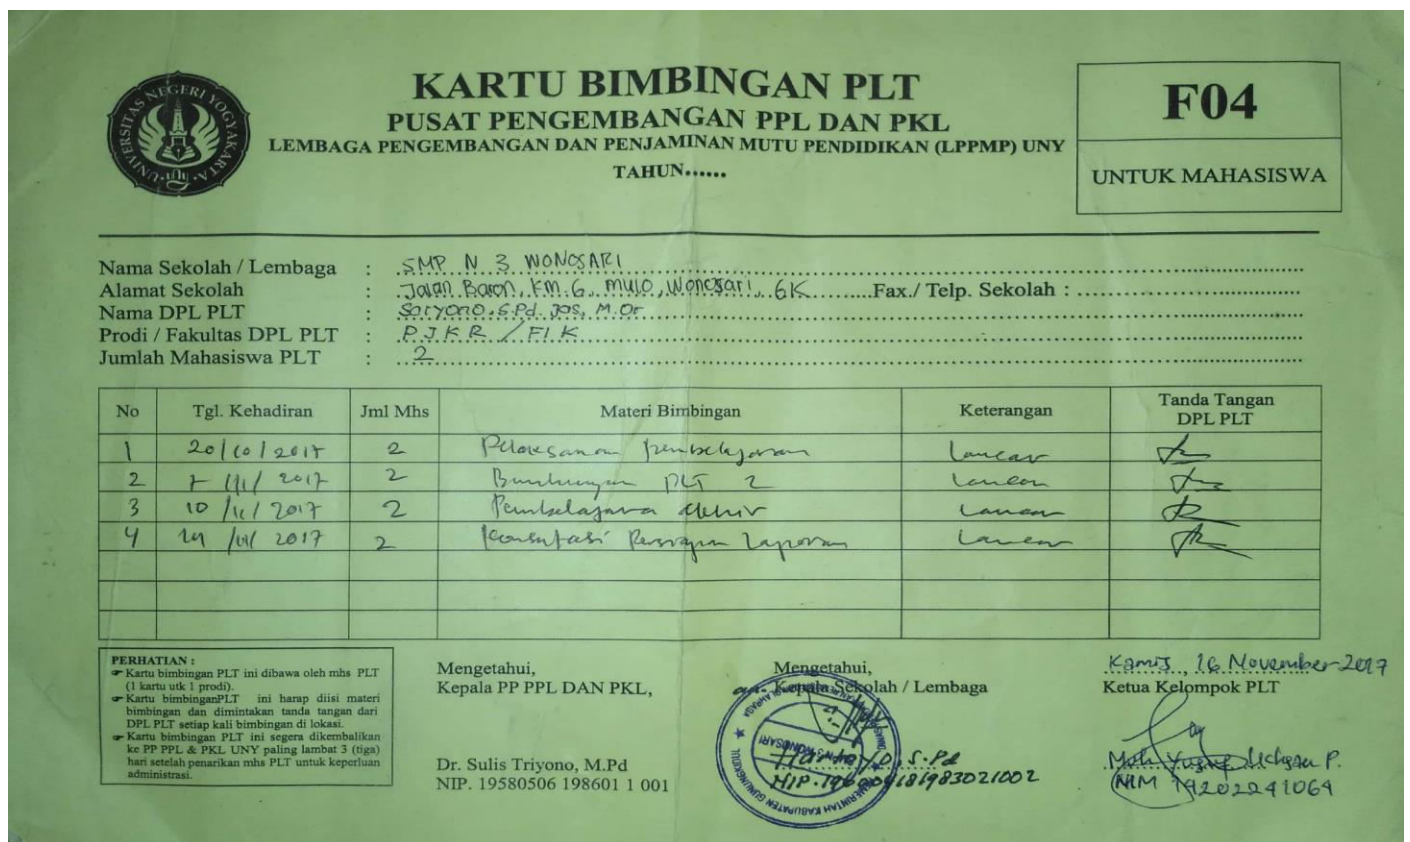 UNIVERSITAS NEGERI YOGYAKARTA
UNY
KARTU BIMBINGAN PLT
PUSAT PENGEMBANGAN PPL DAN PKL
LEMBAGA PENGEMBANGAN DAN PENJAMINAN MUTU PENDIDIKAN (LPPMP) UNY
TAHUN......
F04
UNTUK MAHASISWA
Nama Sekolah / Lembaga : SMP N 3 WONOSARI
Alamat Sekolah : Jalan Baron, km. 6, Mulo, Wonosari, GK Fax./ Telp. Sekolah :
Nama DPL PLT : Saryono, S.Pd. Jas, M.Or
Prodi / Fakultas DPL PLT : PJKR / FIK
Jumlah Mahasiswa PLT : 2
No Tgl. Kehadiran Jml Mhs Materi Bimbingan Keterangan Tanda Tangan DPL PLT
1 20/10/2017 2 Pelaksanaan pembelajaran Lancar
2 2017 2 PLT 2 Lancar
3 10/11/2017 2 Lancar
4 2017 2 Laporan Lancar
PERHATIAN :
☞ Kartu bimbingan PLT ini dibawa oleh mhs PLT
(1 kartu utk 1 prodi).
☞ Kartu bimbinganPLT ini harap diisi materi
bimbingan dan dimintakan tanda tangan dari
DPL PLT setiap kali bimbingan di lokasi.
☞ Kartu bimbingan PLT ini segera dikembalikan
ke PP PPL & PKL UNY paling lambat 3 (tiga)
hari setelah penarikan mhs PLT untuk keperluan
administrasi.
Mengetahui,
Kepala PP PPL DAN PKL,
Dr. Sulis Triyono, M.Pd
NIP. 19580506 198601 1 001
Mengetahui,
an. Kepala Sekolah / Lembaga
S.Pd
Kamis, 16 November 2017
Ketua Kelompok PLT
Moh P.
NIM 14202241064